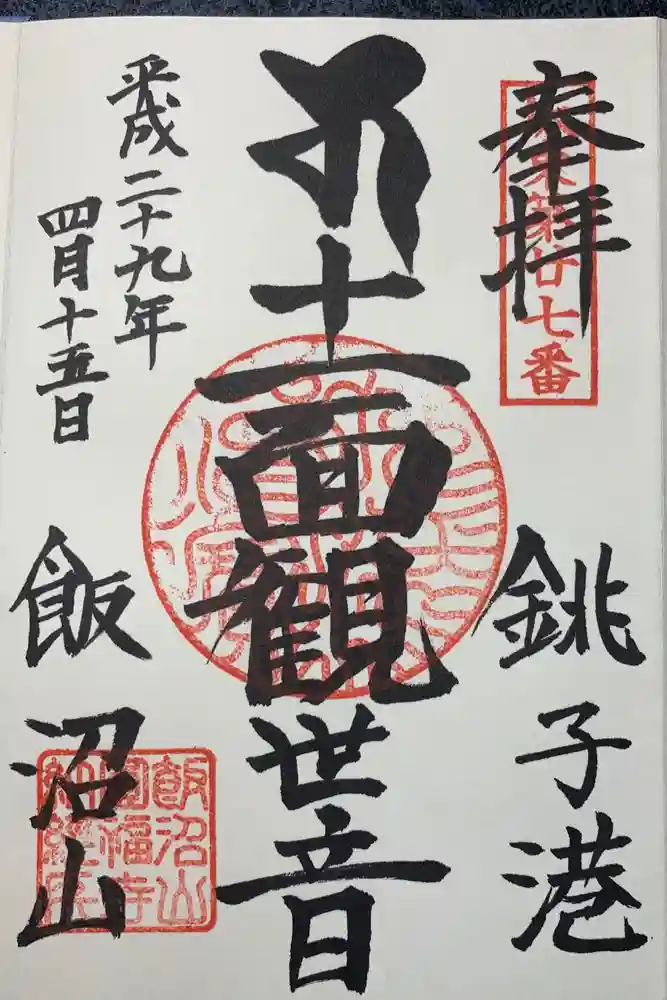 奉拝
坂東第廿七番
銚子港
十一面観世音
平成二十九年
四月十五日
飯沼山
飯沼山
圓福寺
納経所